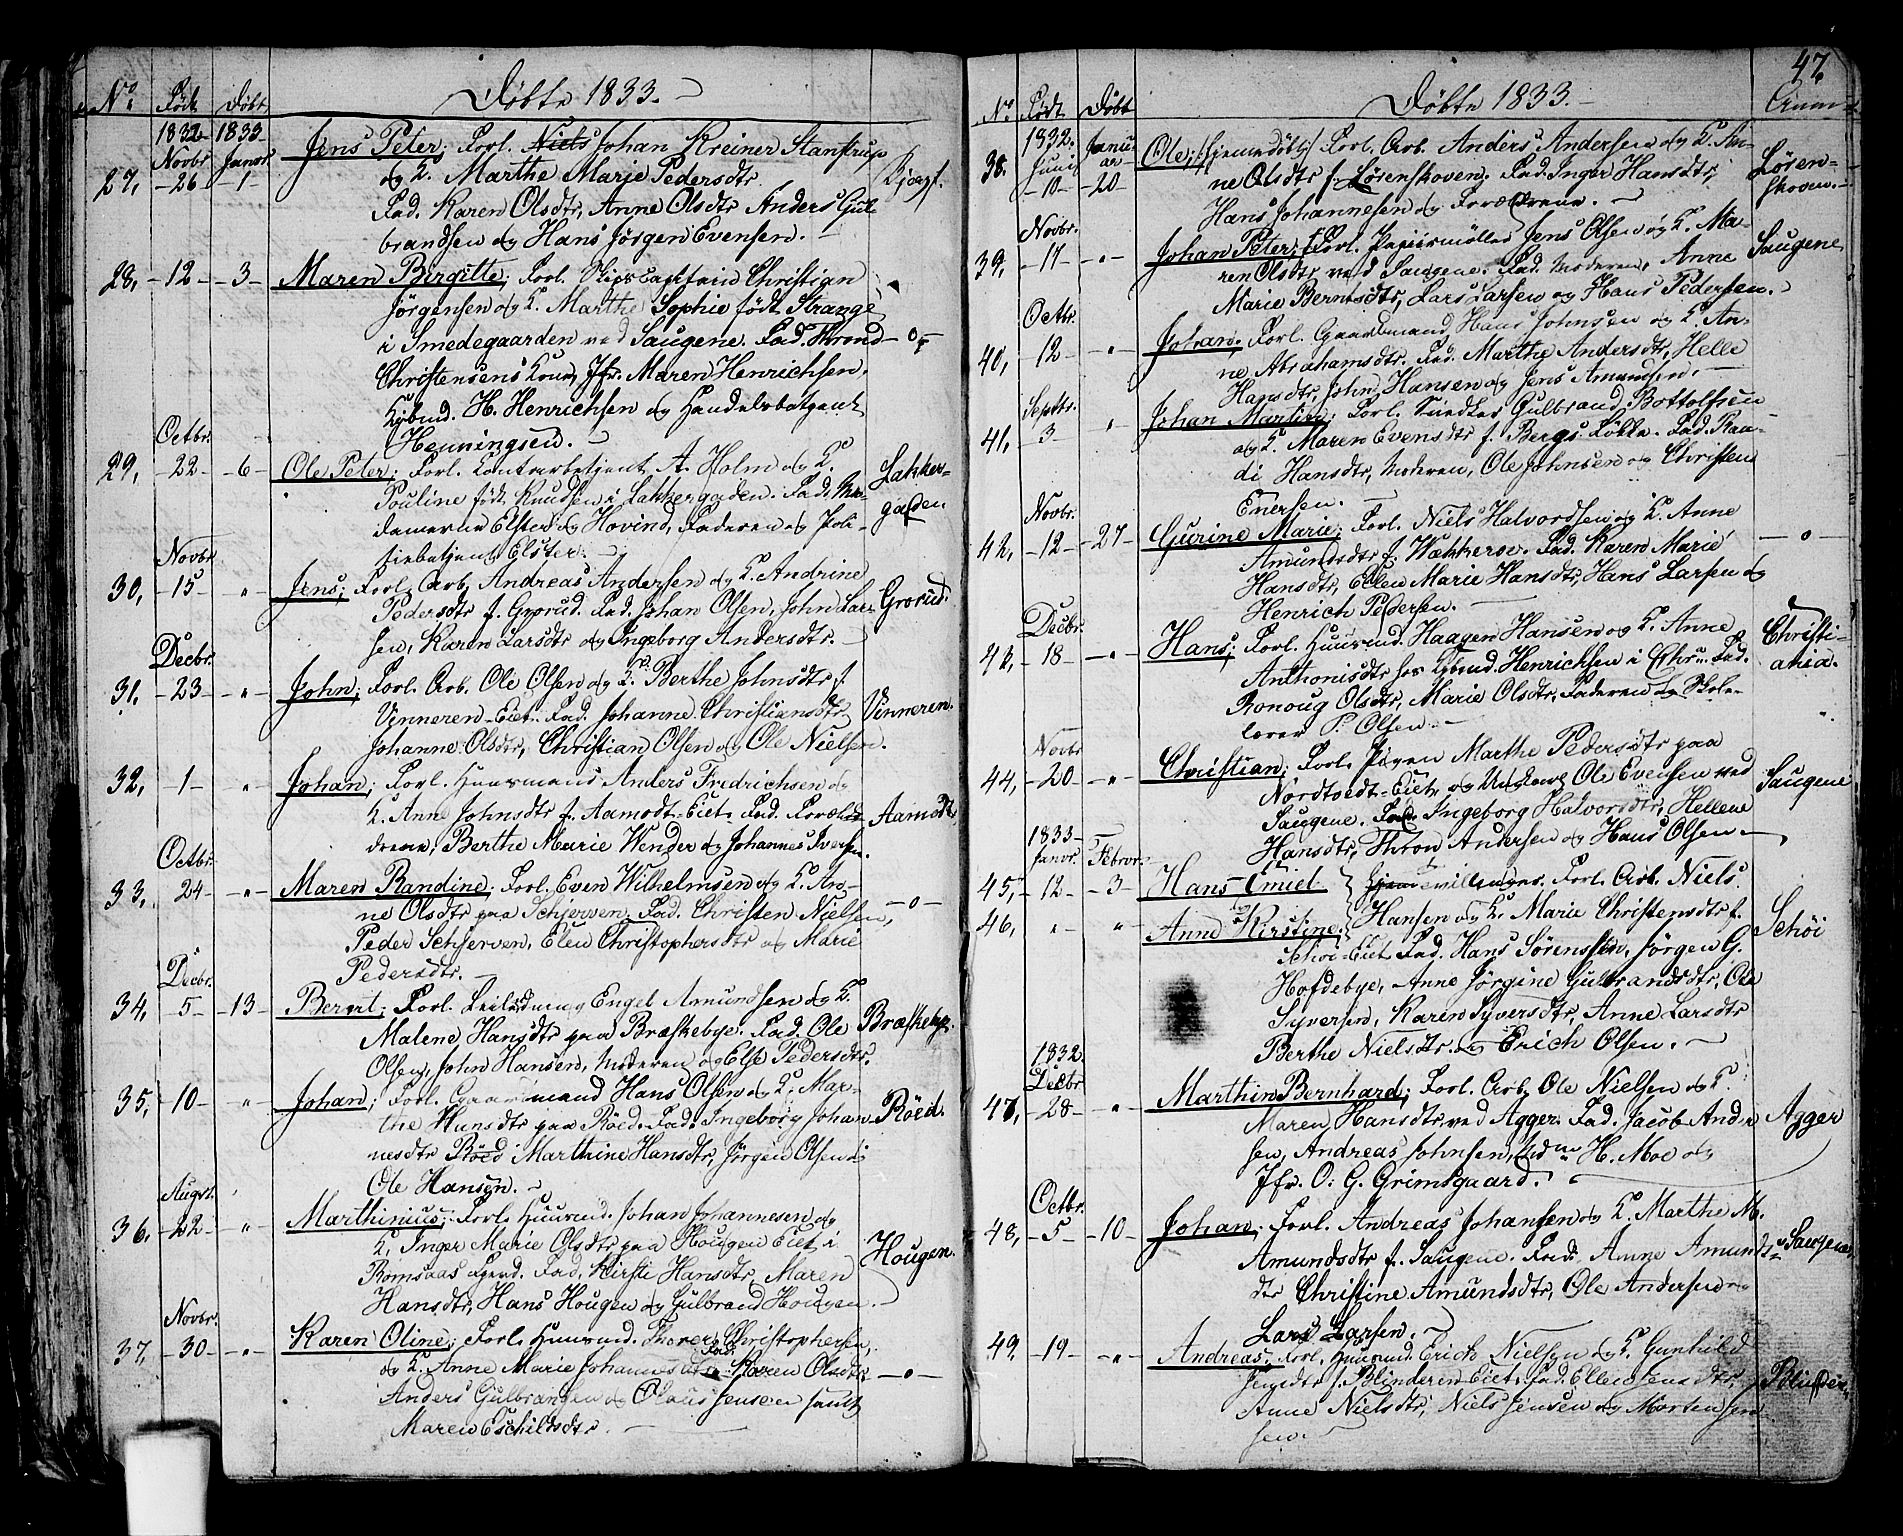 Døbte 1833.
No Født Døbt
1832 1833
Novbr Janvr.
27, -26- -1- Jens Peter; Forl. Niels Johan Kreiner Stanstrup
og K. Marthe Marie Pedersdtr
Fad. Karen Olsdtr, Anne Olsdtr Anders Gul-
brandsen og Hans Jørgen Evensen.
28, -12- -3- Maren Birgitte; Forl. Skipscaptain Christian
Jørgensen og K. Marthe Sophie født Strange
i Smedegaarden ved Saugene. Fad. Thrond -o-
Christensens Kone, Jfr. Maren Henrichsen,
Kjbmd. H. Henrichsen og Handelsbetjent
Henningsen.
Octbr.
29, -22- -6- Ole Peter; Forl. Contorbetjent A. Holm og K. Lakker-
Pouline født Knudsen i Lakkergaden. Fad. Ma- gaden.
damerne Elster og Hovind, Faderen og Poli-
tiebetjent Elster.
Novbr.
30, -15- " Jens; Forl. Arb. Andreas Andersen og K. Andrine
Pedersdtr f. Grorud. Fad. Johan Olsen, John Lar- Grorud.
sen, Karen Larsdtr og Ingeborg Andersdtr.
Decbr.
31, -23- " John; Forl. Arb. Ole Olsen og K. Berthe Johnsdtr f.
Vinneren-Eiet. Fad. Johanne Christiansdtr Vinneren.
Johanne Olsdtr, Christian Olsen og Ole Nielsen.
32, -1- " Johan; Forl. Huusmand Anders Fredrichsen og
K. Anne Johnsdtr f. Aamodt-Eiet. Fad. Foræl- Aamodt
drene, Berthe Marie Wender og Johannes Iversen.
Octbr.
33, 24- -"- Maren Randine; Forl. Even Wilhelmsen og K. An-
ne Olsdtr paa Schjerven. Fad. Christen Nielsen, -o-
Peder Schjerven, Elen Christophersdtr og Marie
Pedersdtr.
Decbr.
34, -5- -13- Bernt; Forl. Leilending Engel Amundsen og K.
Malene Hansdtr paa Bræskebye. Fad. Ole Bræskebye.
Olsen, John Hansen, Moderen og Else Pedersdtr.
35, -10- " Johan; Forl. Gaardmand Hans Olsen og K. Mar-
the Hansdtr paa Röed. Fad. Ingeborg Johan- Röed.
nesdtr Röed Marthine Hansdtr, Jörgen Olsen og
Ole Hansen.
Augst.
36, -22- " Marthinius; Forl. Huusmd. Johan Johannesen og
K. Inger Marie Olsdtr paa Hougen Eiet i Hougen.
Romsaas Egend. Fad. Kirsti Hansdtr, Maren
Hansdtr, Hans Hougen og Gulbrand Hougen.
Novbr.
37, -30- -"- Karen Oline; Forl. Huusmd. Thorer Christophersen,
og K. Anne Marie Johannesdtr. Fad. Karen Olsdtr -o-
Anders Gulbransen og Olaus Jensen samt
Maren Eschildsdtr.
47.
Døbte 1833.
No Født Døbt Anm.
1832. Janu-
Juni ar-
38. -10- -20- Ole; /:hjemmedöbt:/ Forl. Arb. Anders Andersen og K. An- Lören-
ne Olsdtr f. Lörenskoven. Fad. Inger Hansdtr, skoven.
Hans Johannesen og Forældrene.
Novbr.
39, -17- -"- Johan Peter; Forl. Papiirmöller Jens Olsen og K. Ma-
ren Olsdtr ved Saugene. Fad. Moderen, Anne Saugene
Marie Berntsdtr, Lars Larsen og Hans Pedersen.
Octbr.
40, -12- -"- Johan; Forl. Gaardmand Hans Johnsen og K. An-
ne Abrahamsdtr. Fad. Marthe Andersdtr, Helle
Hansdtr, John Hansen og Jens Amundsen.
Septbr.
41, -3- " Johan Martin; Forl. Snedker Gulbrand Bottolfsen
og K. Maren Evensdtr f. Bergs Lökke. Fad. Ran-
di Hansdtr, Moderen, Ole Johnsen og Christen
Enersen.
Novbr.
42, -12- -27- Gurine Marie; Forl. Niels Halvordsen og K. Anne
Amundsdtr f. Wækkerøe. Fad. Karen Marie -o-
Hansdtr, Ellen Marie Hansdtr, Hans Larsen og
Henrich Pedersen.
Decbr.
43, -18- -"- Hans; Forl. Huusmd. Haagen Hansen og K. Anne Christi-
Anthonisdtr hos Kjbmd. Henrichsen i Chra. Fad. ania.
Ronoug Olsdtr, Marie Olsdtr, Faderen og Skole-
lærer P. Olsen.
Novbr
44, -20- -"- Christian; Forl. Pigen Marthe Pedersdtr paa
Nordtvedt-Eiet og Ungkarl Ole Evensen ved Saugene
Saugene. Fad. Ingeborg Halvorsdtr, Hellene
Hansdtr, Thron Andersen og Hans Olsen.
1833
Janvr. Februr.
45, -12- -3- Hans Emiel } Tvillinger. Forl. Arb. Niels
og
46, " " Anne Kirstine } Hansen og K. Marie Christensdtr f.
Schöi-Eiet Fad. Hans Sørenssen, Jörgen G. Schöi
Hofdebye, Anne Jörgine Gulbrandsdtr, Ole
Syversen, Karen Syversdtr, Anne Larsdtr
Berthe Nielsdtr og Erich Olsen.
1832.
Decbr
47, -28- " Marthin Bernhard; Forl. Arb. Ole Nielsen og K.
Maren Hansdtr ved Agger. Fad. Jacob Ander- Agger
sen, Andreas Johnsen, H. Moe og
Jfr. O. G. Grimsgaard.
Octbr.
48, -5- -10- Johan; Forl. Andreas Johansen og K. Marthe M.
Amundsdtr f. Saugene. Fad. Anne Amunds- Saugene,
dtr Christine Amundsdtr, Ole Andersen og
Lars Larsen.
49, -19- -"- Andreas; Forl. Huusmd. Erich Nielsen og K. Gunhild
Jensdtr f. Blinderen Eiet. Fad. Ellen Jensdtr,
Anne Nielsdtr, Niels Jensen og Morten Jen-
sen.